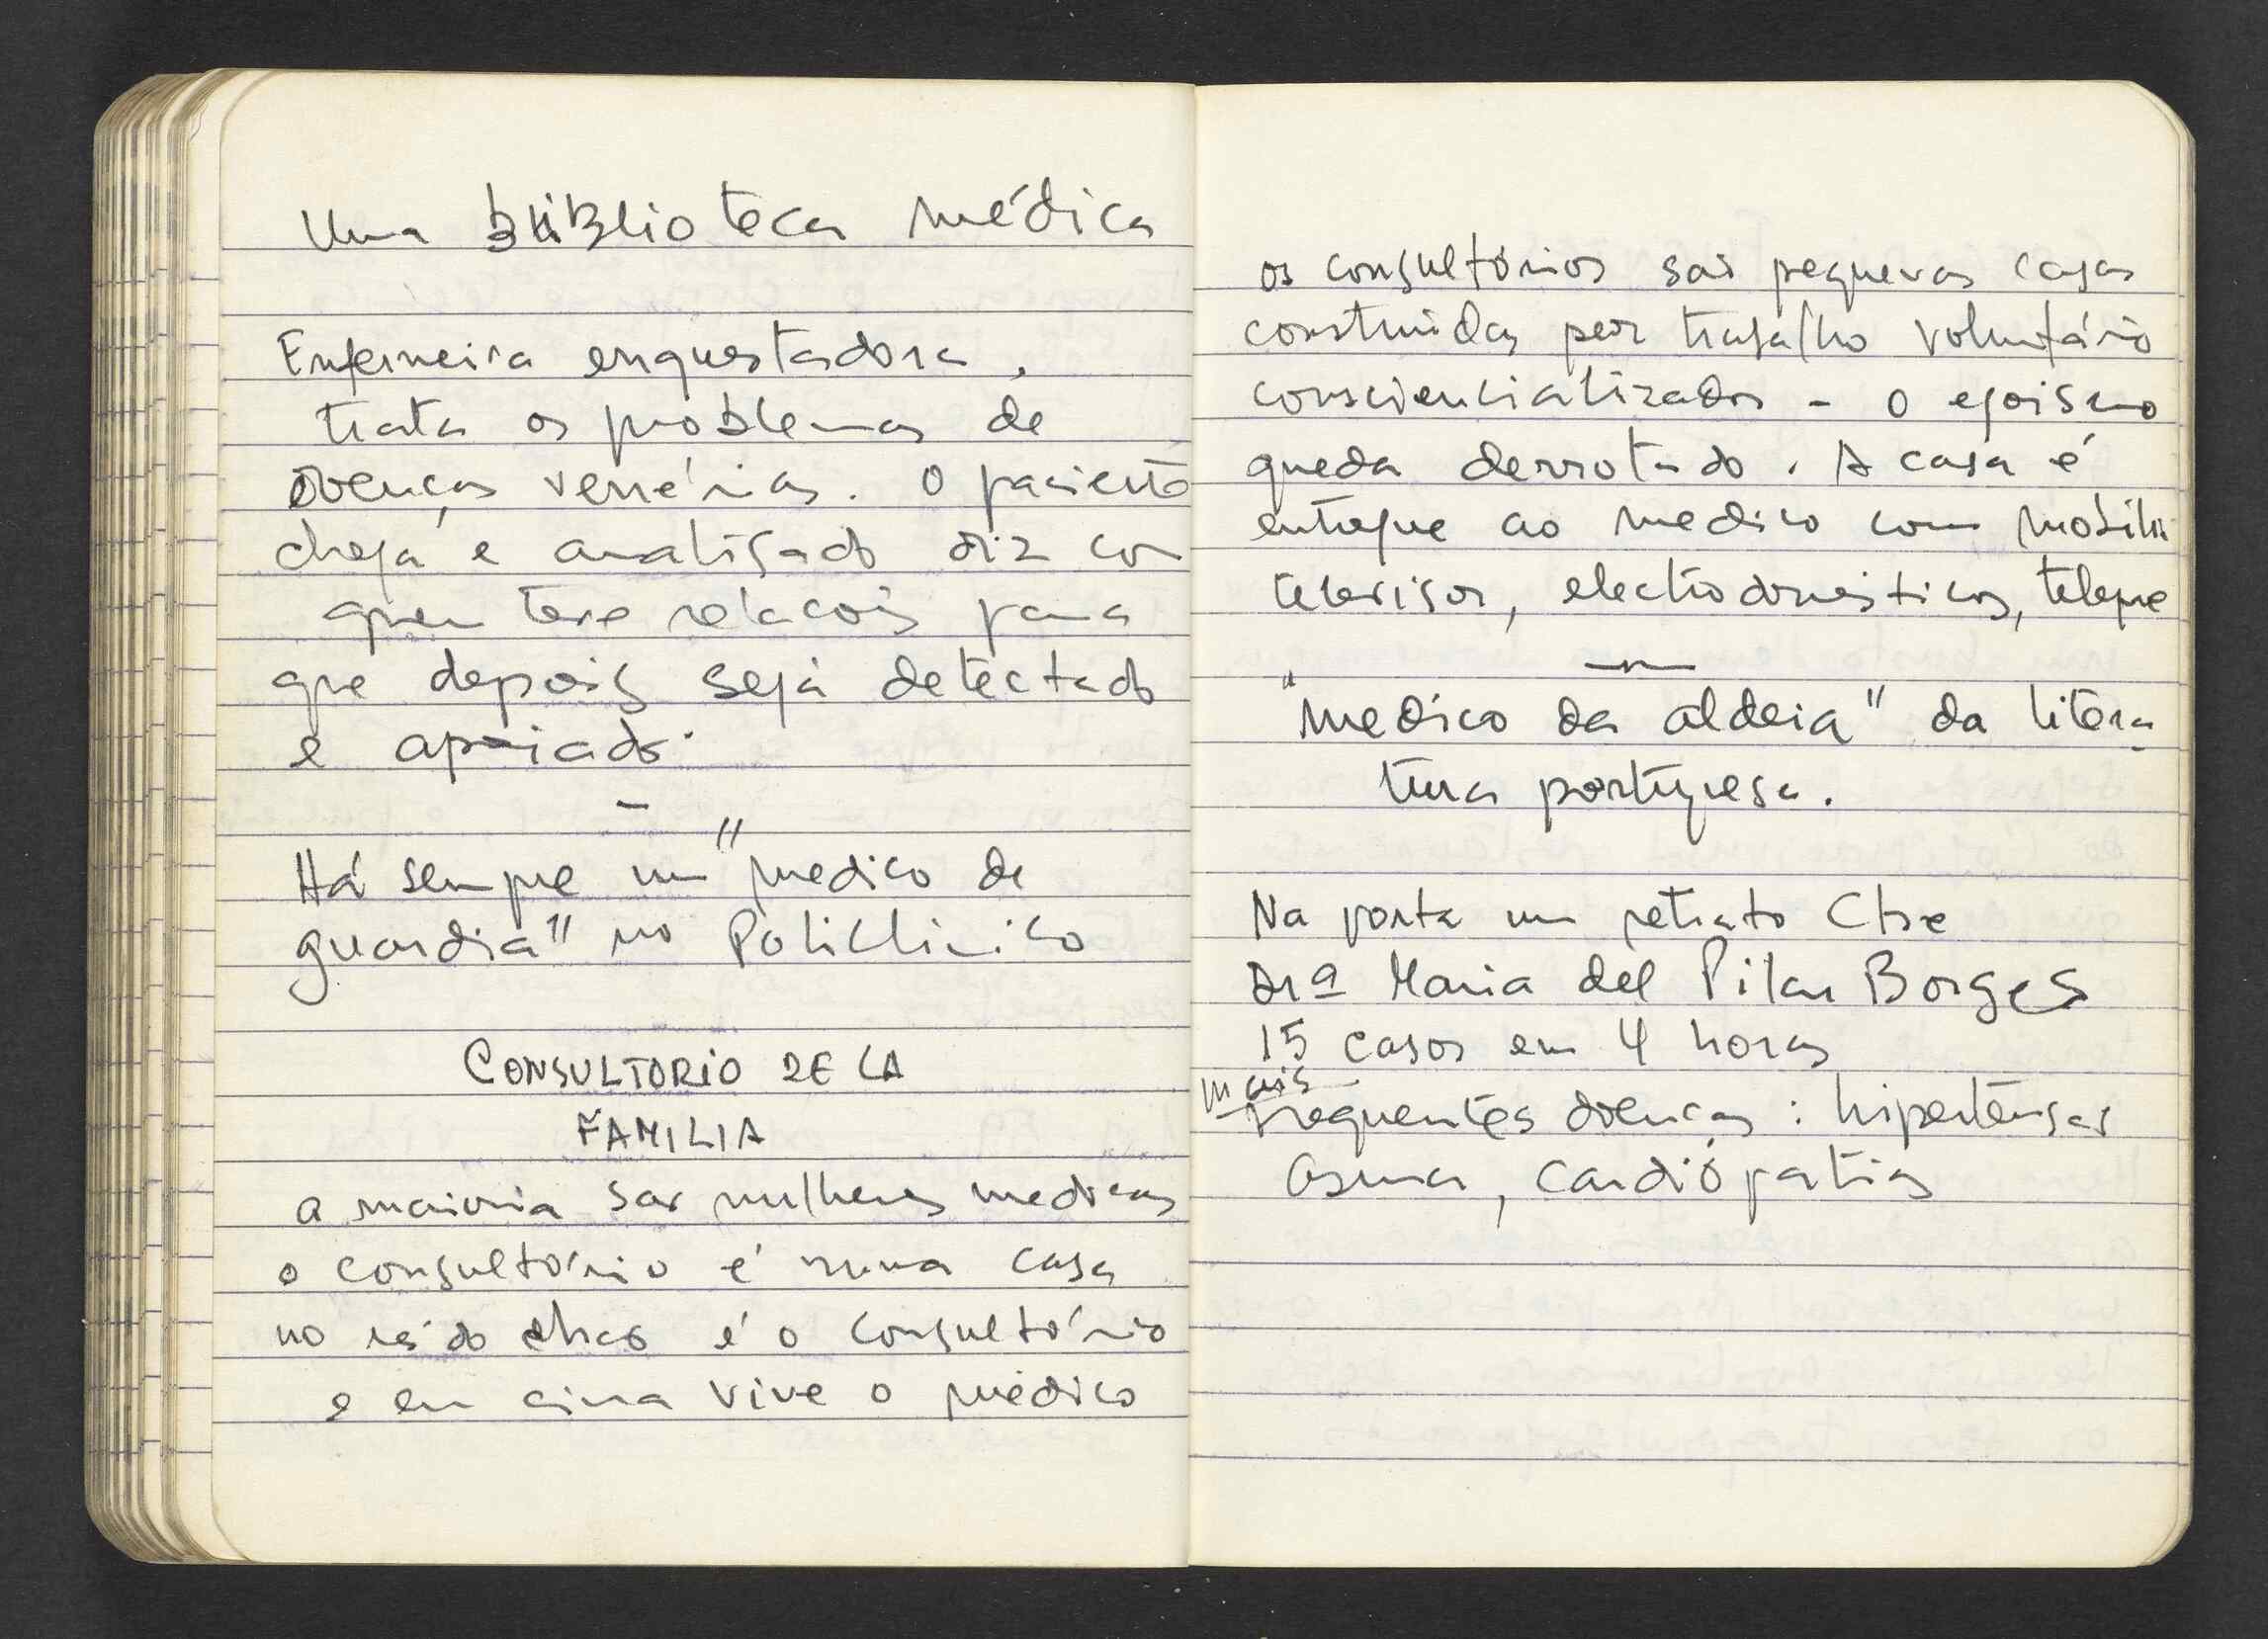 Uma biblioteca médica
Enfermeira enquestadora,
trata os problemas de
doenças venérias. O paciente
chega e analisado diz com
quem teve relacois para
que depois seja detectado
e apoiado.
Há sempre um "medico de
guardia" no Policlinico
CONSULTORIO DE LA
FAMILIA
a maioria sao mulheres medicas
o consultório é numa casa
no rés do chao é o consultório
e em cima vive o médico
os consultórios sao pequenas casas
construidas por trabalho voluntário
consciencializados - o egoismo
queda derrotado. A casa é
entregue ao medico com mobili
televisor, electrodomésticos,
"medico da aldeia" da litera
tura portuguesa.
Na porta um retrato Che
Drª Maria del Pilar Borges
15 casos em 4 horas
mais
frequentes doenças: hipertensao
asma, cardiópatias